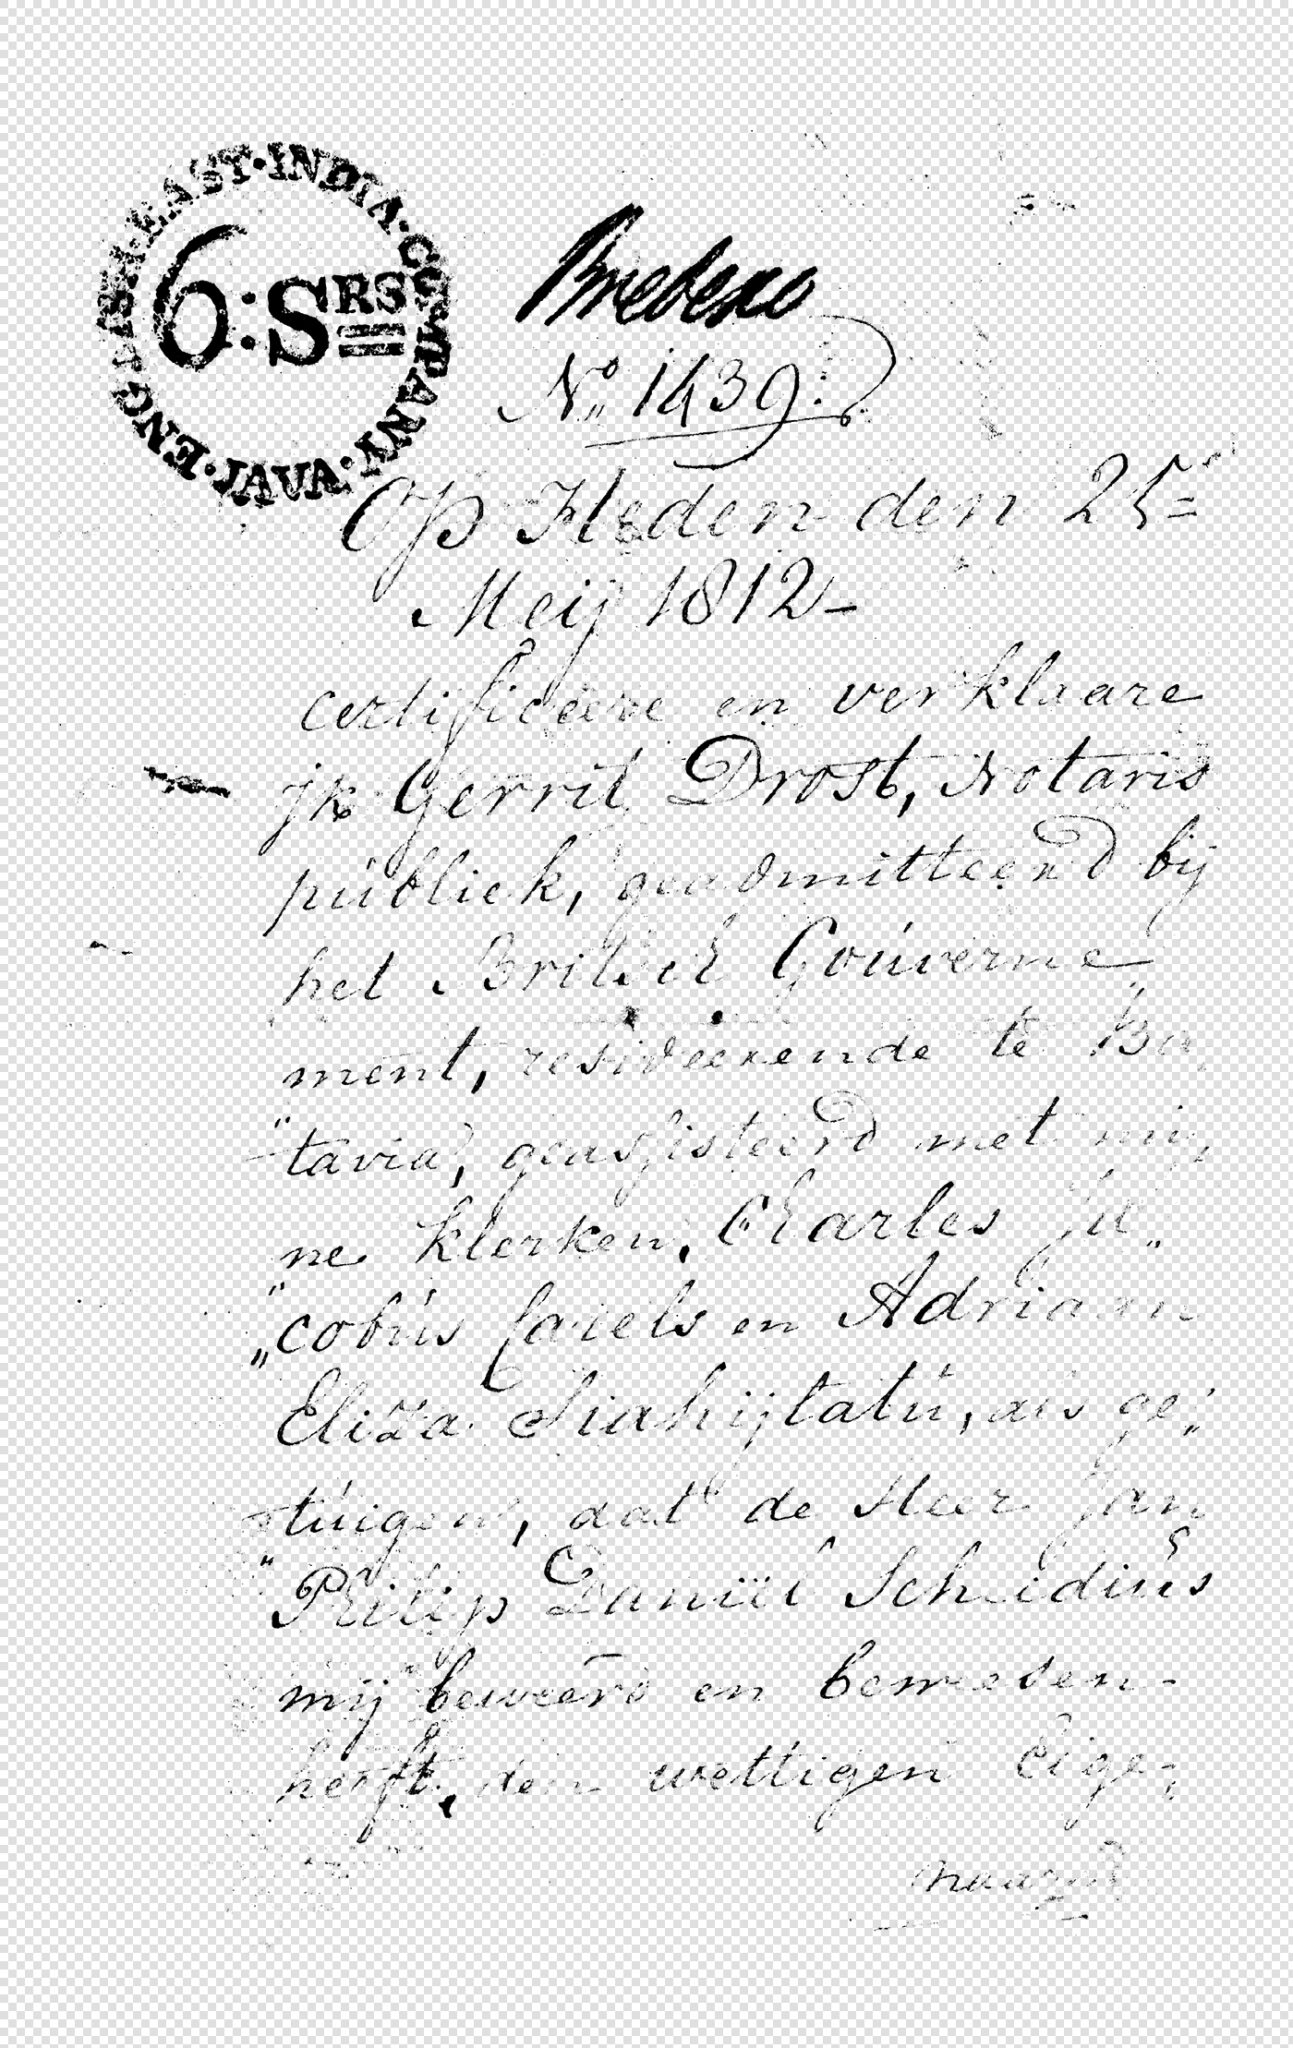 ENGLISH·EAST·INDIA·COMPANY·JAVA·
6:SRS
No„ 1439:
Op Heden den 25=
Meij 1812-
certificeere en verklaare
jk Gerrit Drost, Notaris
públiek, geadmitteerd bij
het Britsch Goúverne„
ment, resideerende te Ba
"tavia, geassisteerd met mij„
ne klerken, Charles Ja„
„cobús Carels en Adriaan
Eliza Siahijtatú, als ge„
"túigen, dat de Heer Jan
"Philip Daniël Scheidiús
mij beweerd en bewesen-
heeft, den wettigen Eige„
naar